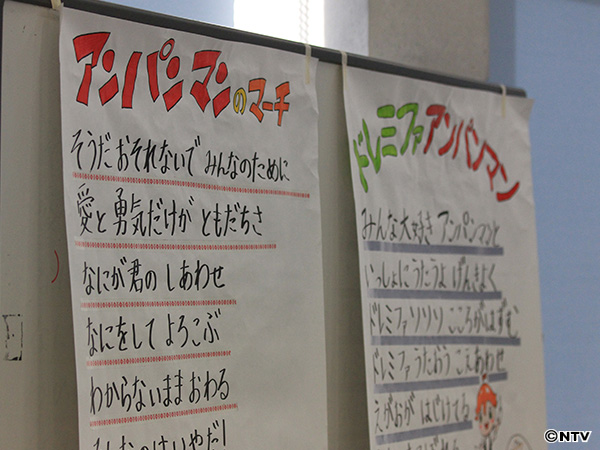 アンパンマンのマーチ
そうだ おそれないで みんなのために
愛と 勇気だけが ともだちさ
なにが君の しあわせ
なにをして よろこぶ
わからないまま おわる
ドレミファアンパンマン
みんな大好き アンパンマンと
いっしょにうたうよ げんきよく
ドレミファソソソ こころがはずむ
ドレミファ うたおう こえあわせ
えがおが はじけてる
©NTV